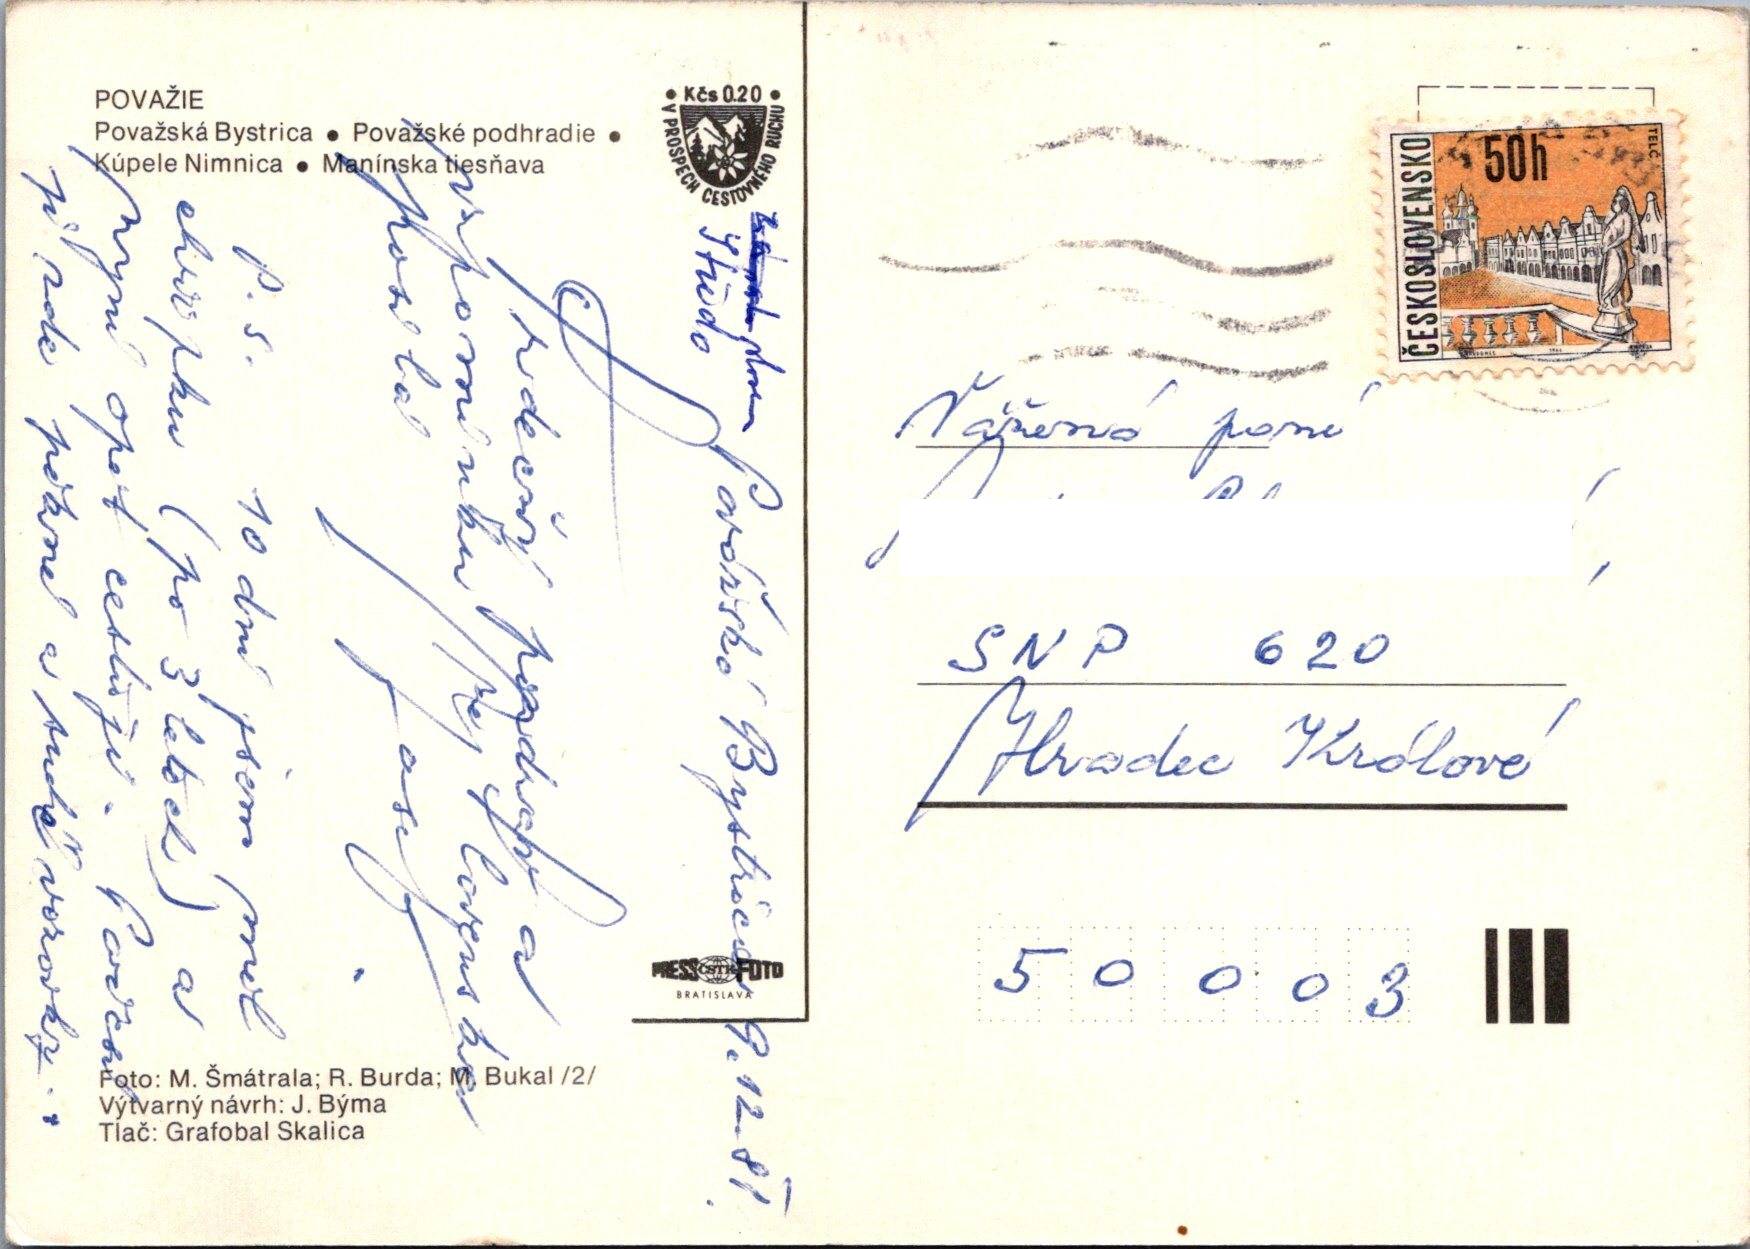 POVAŽIE
Považská Bystrica ● Považské podhradie ●
Kúpele Nimnica ● Manínska tiesňava
• Kčs 0.20 •
V PROSPECH CESTOVNÉHO RUCHU
ČESKOSLOVENSKO
50h
TELČ
Považská Bystrica 9. 12. 81
Srdečný pozdrav a
vzpomínku z Slovenska
posílá
P. S. 10 dní jsem měl
chřipku (po 3 letech) a
nyní opět cestuji. Počasí
je zde pěkné a suché vozovky.
Vážená paní
SNP 620
Hradec Králové
50003
PRESS ČSTK FOTO
BRATISLAVA
Foto: M. Šmátrala; R. Burda; M. Bukal /2/
Výtvarný návrh: J. Býma
Tlač: Grafobal Skalica